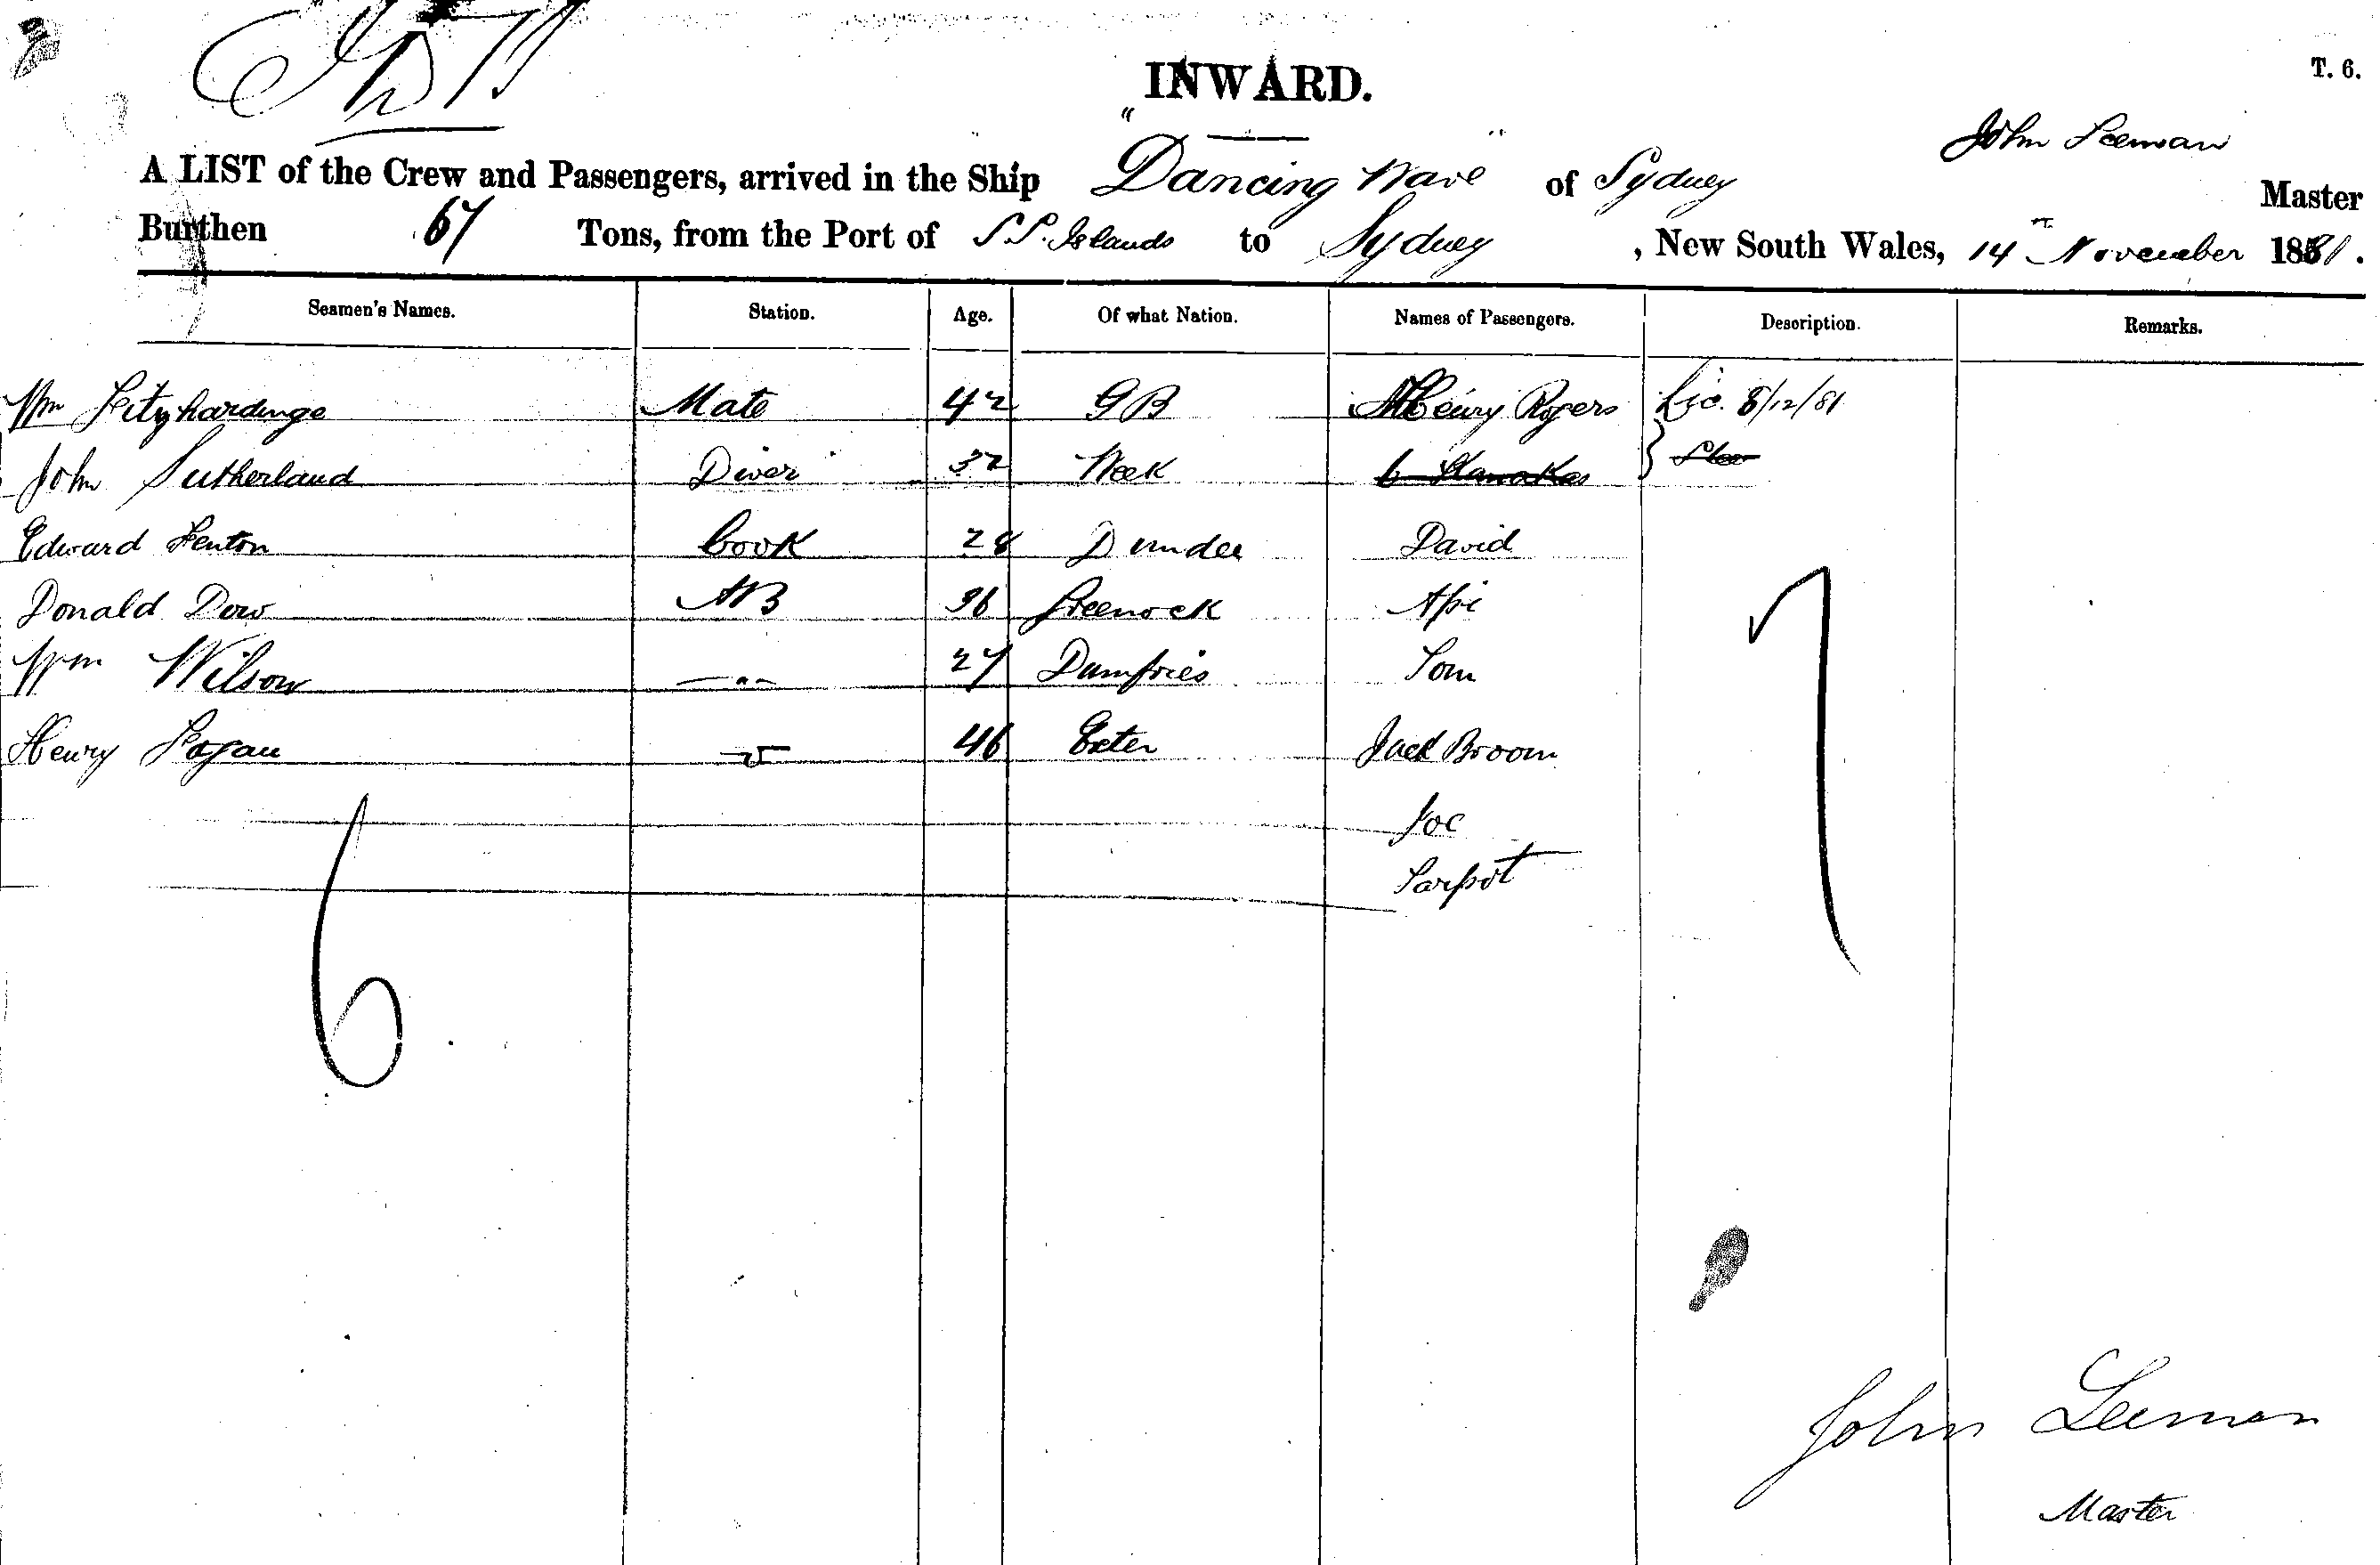 INWARD.
T. 6.
John Leeman
A LIST of the Crew and Passengers, arrived in the Ship "Dancing Wave" of Sydney Master
Burthen 67 Tons, from the Port of S S. Islands to Sydney , New South Wales, 14th November 1881.
Seamen's Names. Station. Age. Of what Nation. Names of Passengers. Description. Remarks.
Wm Fitzhardinge Mate 42 GB Henry Rogers 8/12/81
John Sutherland Diver 32 Week 6 Kanakas
Edward Fenton Cook 28 Dundee David
Donald Dow AB 36 Greenock Api
Wm Wilson —"— 27 Dumfries Tom
Henry Hogan 46 Exter Jack Broom
Joe
Sarpot
6
7
John Leeman
Master